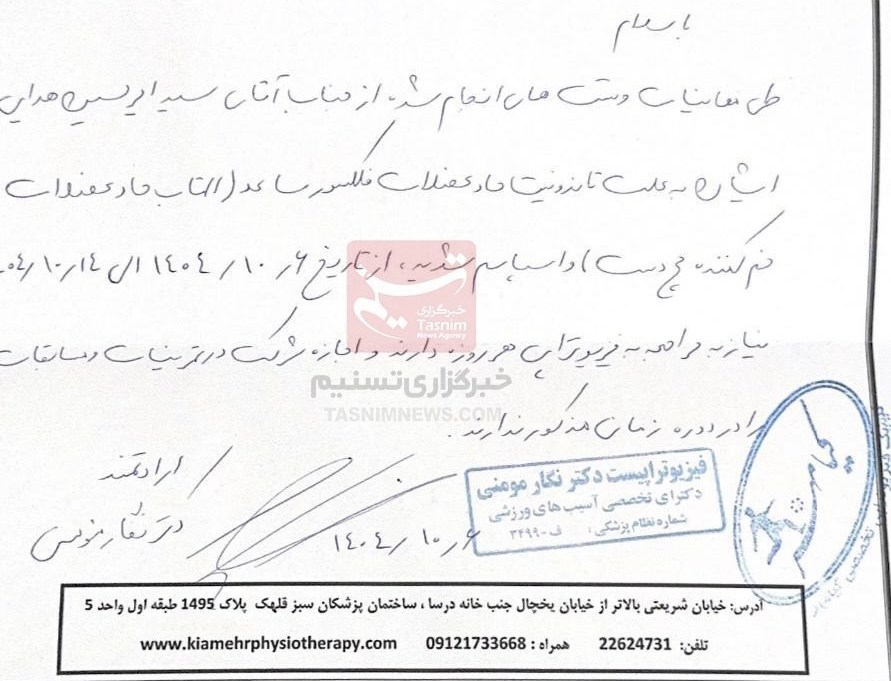 با سلام
طی معاینات و تست های انجام شده از جناب آقای سید ابوالحسن هدایی
ایشان به علت تاندونیت حاد عضلات فلکسور ساعد (التهاب حاد عضلات
خم کننده مچ دست) و اسپاسم شدید، از تاریخ ۶ر۱۰ر۱۴۰۴ الی ۱۴ر۱۰ر
نیاز به مراجعه به فیزیوتراپی هر روزه دارند و اجازه شرکت در تمرینات و مسابقات
را در دوره زمانی مذکور ندارند.
خبرگزاری
Tasnim
News Agency
خبرگزاری تسنیم
TASNIMNEWS.COM
ارادتمند
دکتر نگار مومنی
۶ر۱۰ر۱۴۰۴
فیزیوتراپیست دکتر نگار مومنی
دکترای تخصصی آسیب های ورزشی
شماره نظام پزشکی: ف-۳۴۹۹
آدرس: خیابان شریعتی بالاتر از خیابان یخچال جنب خانه درسا ، ساختمان پزشکان سبز قلهک پلاک 1495 طبقه اول واحد 5
تلفن: 22624731 همراه : 09121733668 www.kiamehrphysiotherapy.com